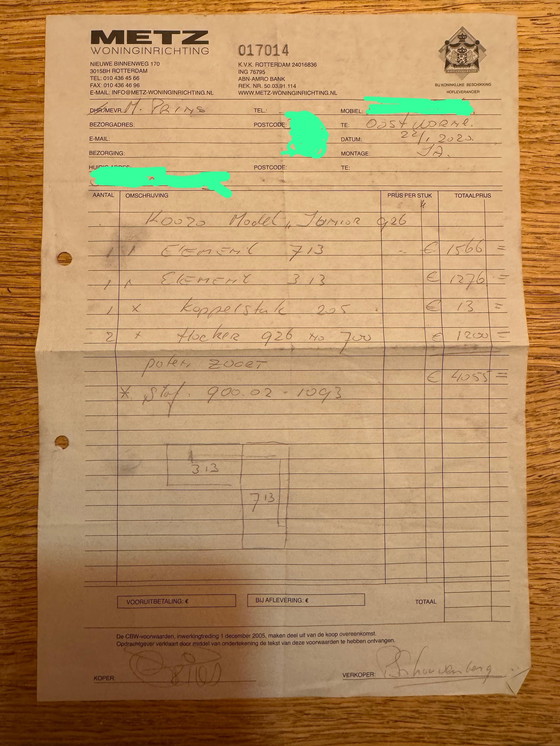 METZ
WONINGINRICHTING
017014
NIEUWE BINNENWEG 170
3015BH ROTTERDAM
TEL 010 436 45 66
FAX 010 436 46 96
E-MAIL: INFO@METZ-WONINGINRICHTING.NL
K.V.K. ROTTERDAM 24016836
ING 76795
ABN-AMRO BANK
REK. NR. 50.03.91.114
WWW.METZ-WONINGINRICHTING.NL
BIJ KONINKLIJKE BESCHIKKING
HOFLEVERANCIER
DHR/MEVR. M. PRINS TEL. MOBIEL:
BEZORGADRES: POSTCODE: TE: OOSTVOORNE.
E-MAIL: DATUM: 22/1 2020.
BEZORGING: MONTAGE: JA.
POSTCODE: TE:
AANTAL OMSCHRIJVING PRIJS PER STUK TOTAALPRIJS
Model " JUNIOR 926 "
1 x ELEMENT 713 € 1566 =
1 x ELEMENT 313 € 1276 =
1 x Koppelstuk 205 € 13 =
2 x Hocker 926 no 700 € 1200 =
poten ZWART
€ 4055 =
* Stof. 900.02 - 1093
313
713
VOORUITBETALING: € BIJ AFLEVERING: € TOTAAL
De CBW-voorwaarden, inwerkingtreding 1 december 2005, maken deel uit van de koop overeenkomst.
Opdrachtgever verklaart door middel van ondertekening de tekst van deze voorwaarden te hebben ontvangen.
KOPER: VERKOPER: